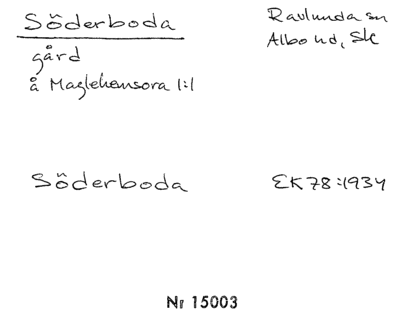 Söderboda
Ravlunda sn
Albo hd, Sk
gård
å Maglehems ora 1:1
Söderboda
EK78:1934
Nr 15003